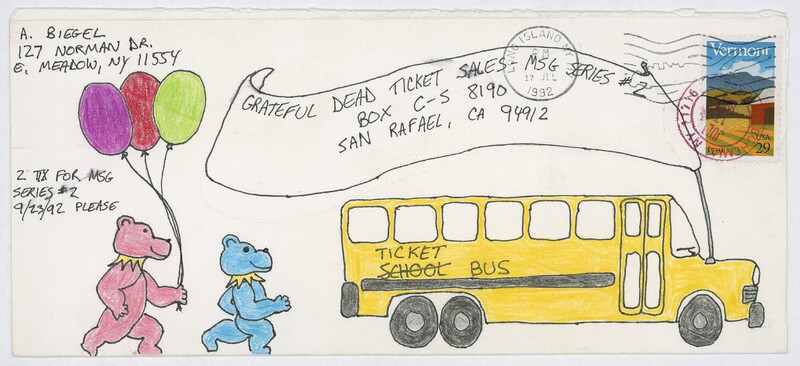 A. BIEGEL
127 NORMAN DR.
E. MEADOW, NY 11554
2 TIX FOR MSG
SERIES #2
9/23/92 PLEASE
GRATEFUL DEAD TICKET SALES MSG SERIES #2
BOX C-S 8190
SAN RAFAEL, CA 94912
LONG ISLAND NY
PM
17 JUL
1992
Vermont
USA
29
NY 11716
TICKET
SCHOOL BUS